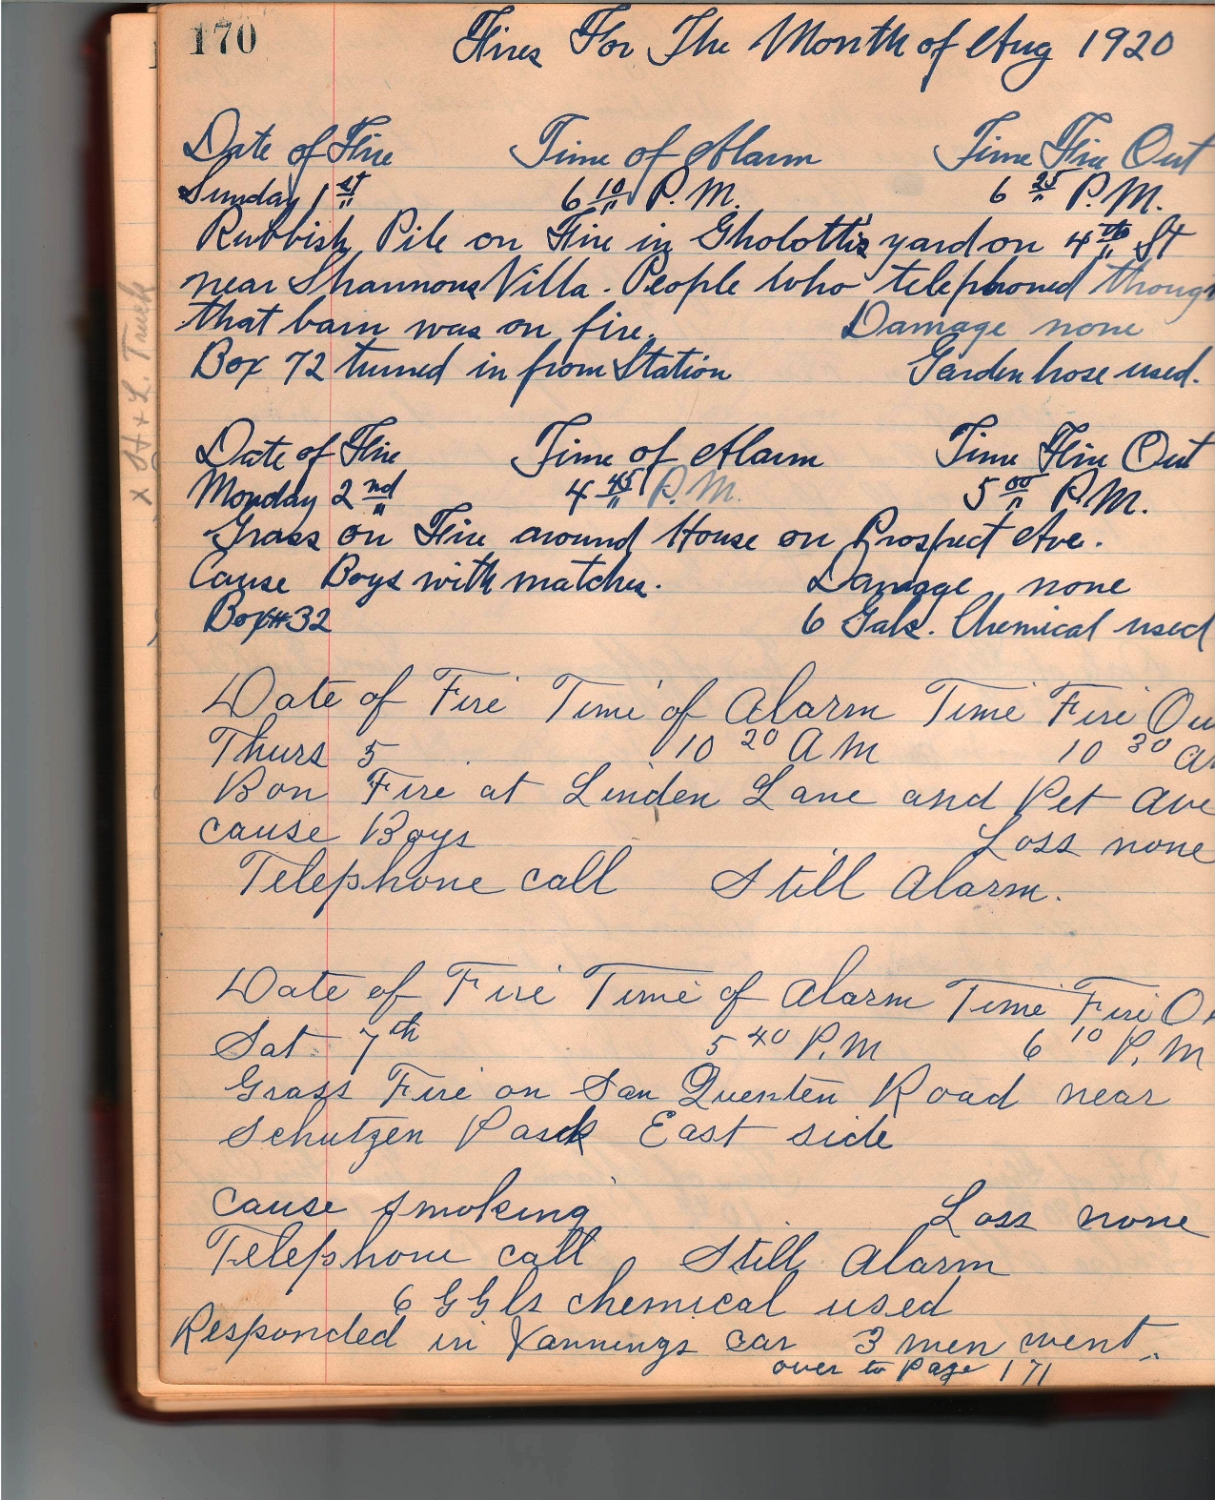 170
Fires For The Month of Aug 1920
Date of Fire Time of Alarm Time Fire Out
Sunday 1st 6 10 P.M. 6 25 P.M.
Rubbish Pile on Fire in Gholotti's yard on 4th St
near Shannons Villa. People who telephoned though
that barn was on fire. Damage none
Box 72 turned in from Station Garden hose used.
Date of Fire Time of Alarm Time Fire Out
Monday 2nd 4 45 P.M. 5 00 P.M.
Grass on Fire around House on Prospect Ave.
Cause Boys with matches. Damage none
Box #32 6 Gals. Chemical used
Date of Fire Time of Alarm Time Fire Ou
Thurs 5 10 20 AM 10 30 a
Bon Fire at Linden Lane and Pet ave
cause Boys Loss none
Telephone call Still Alarm.
Date of Fire Time of Alarm Time Fire O
Sat. 7th 5 40 P.M 6 10 P.M
Grass Fire on San Quenten Road near
Schutzen Park East side
Cause smoking Loss none
Telephone call Still Alarm
6 GGls chemical used
Responded in car 3 men went.
over to Page 171
x H + L. Truck